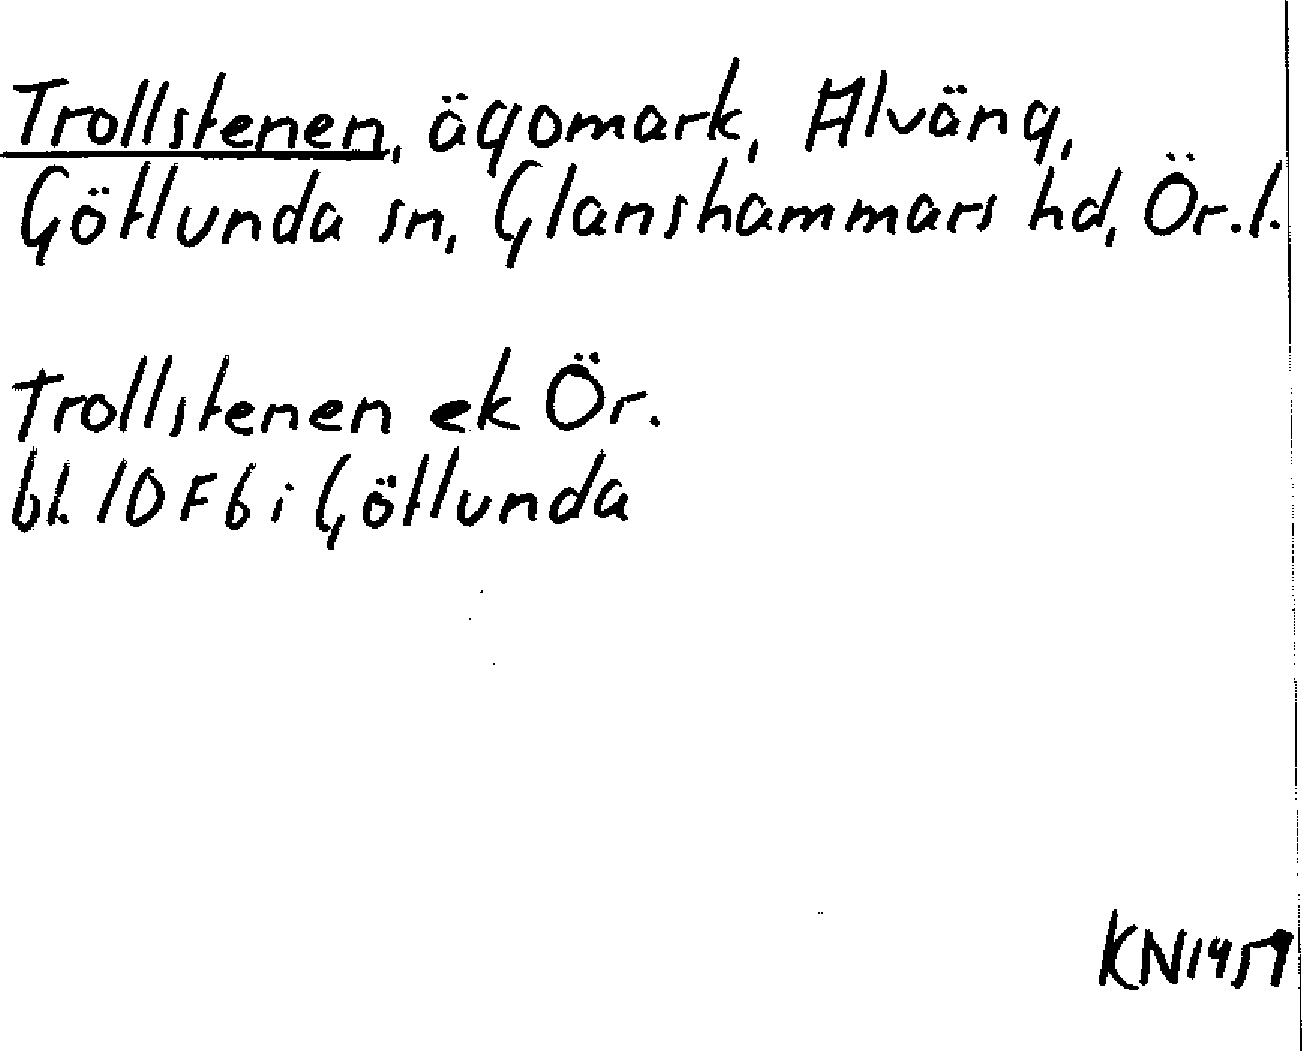 Trollstenen, ägomark, Alväng,
Götlunda sn, Glanshammars hd, Ör.l.
Trollstenen ek Ör.
bl. 10F6i Götlunda